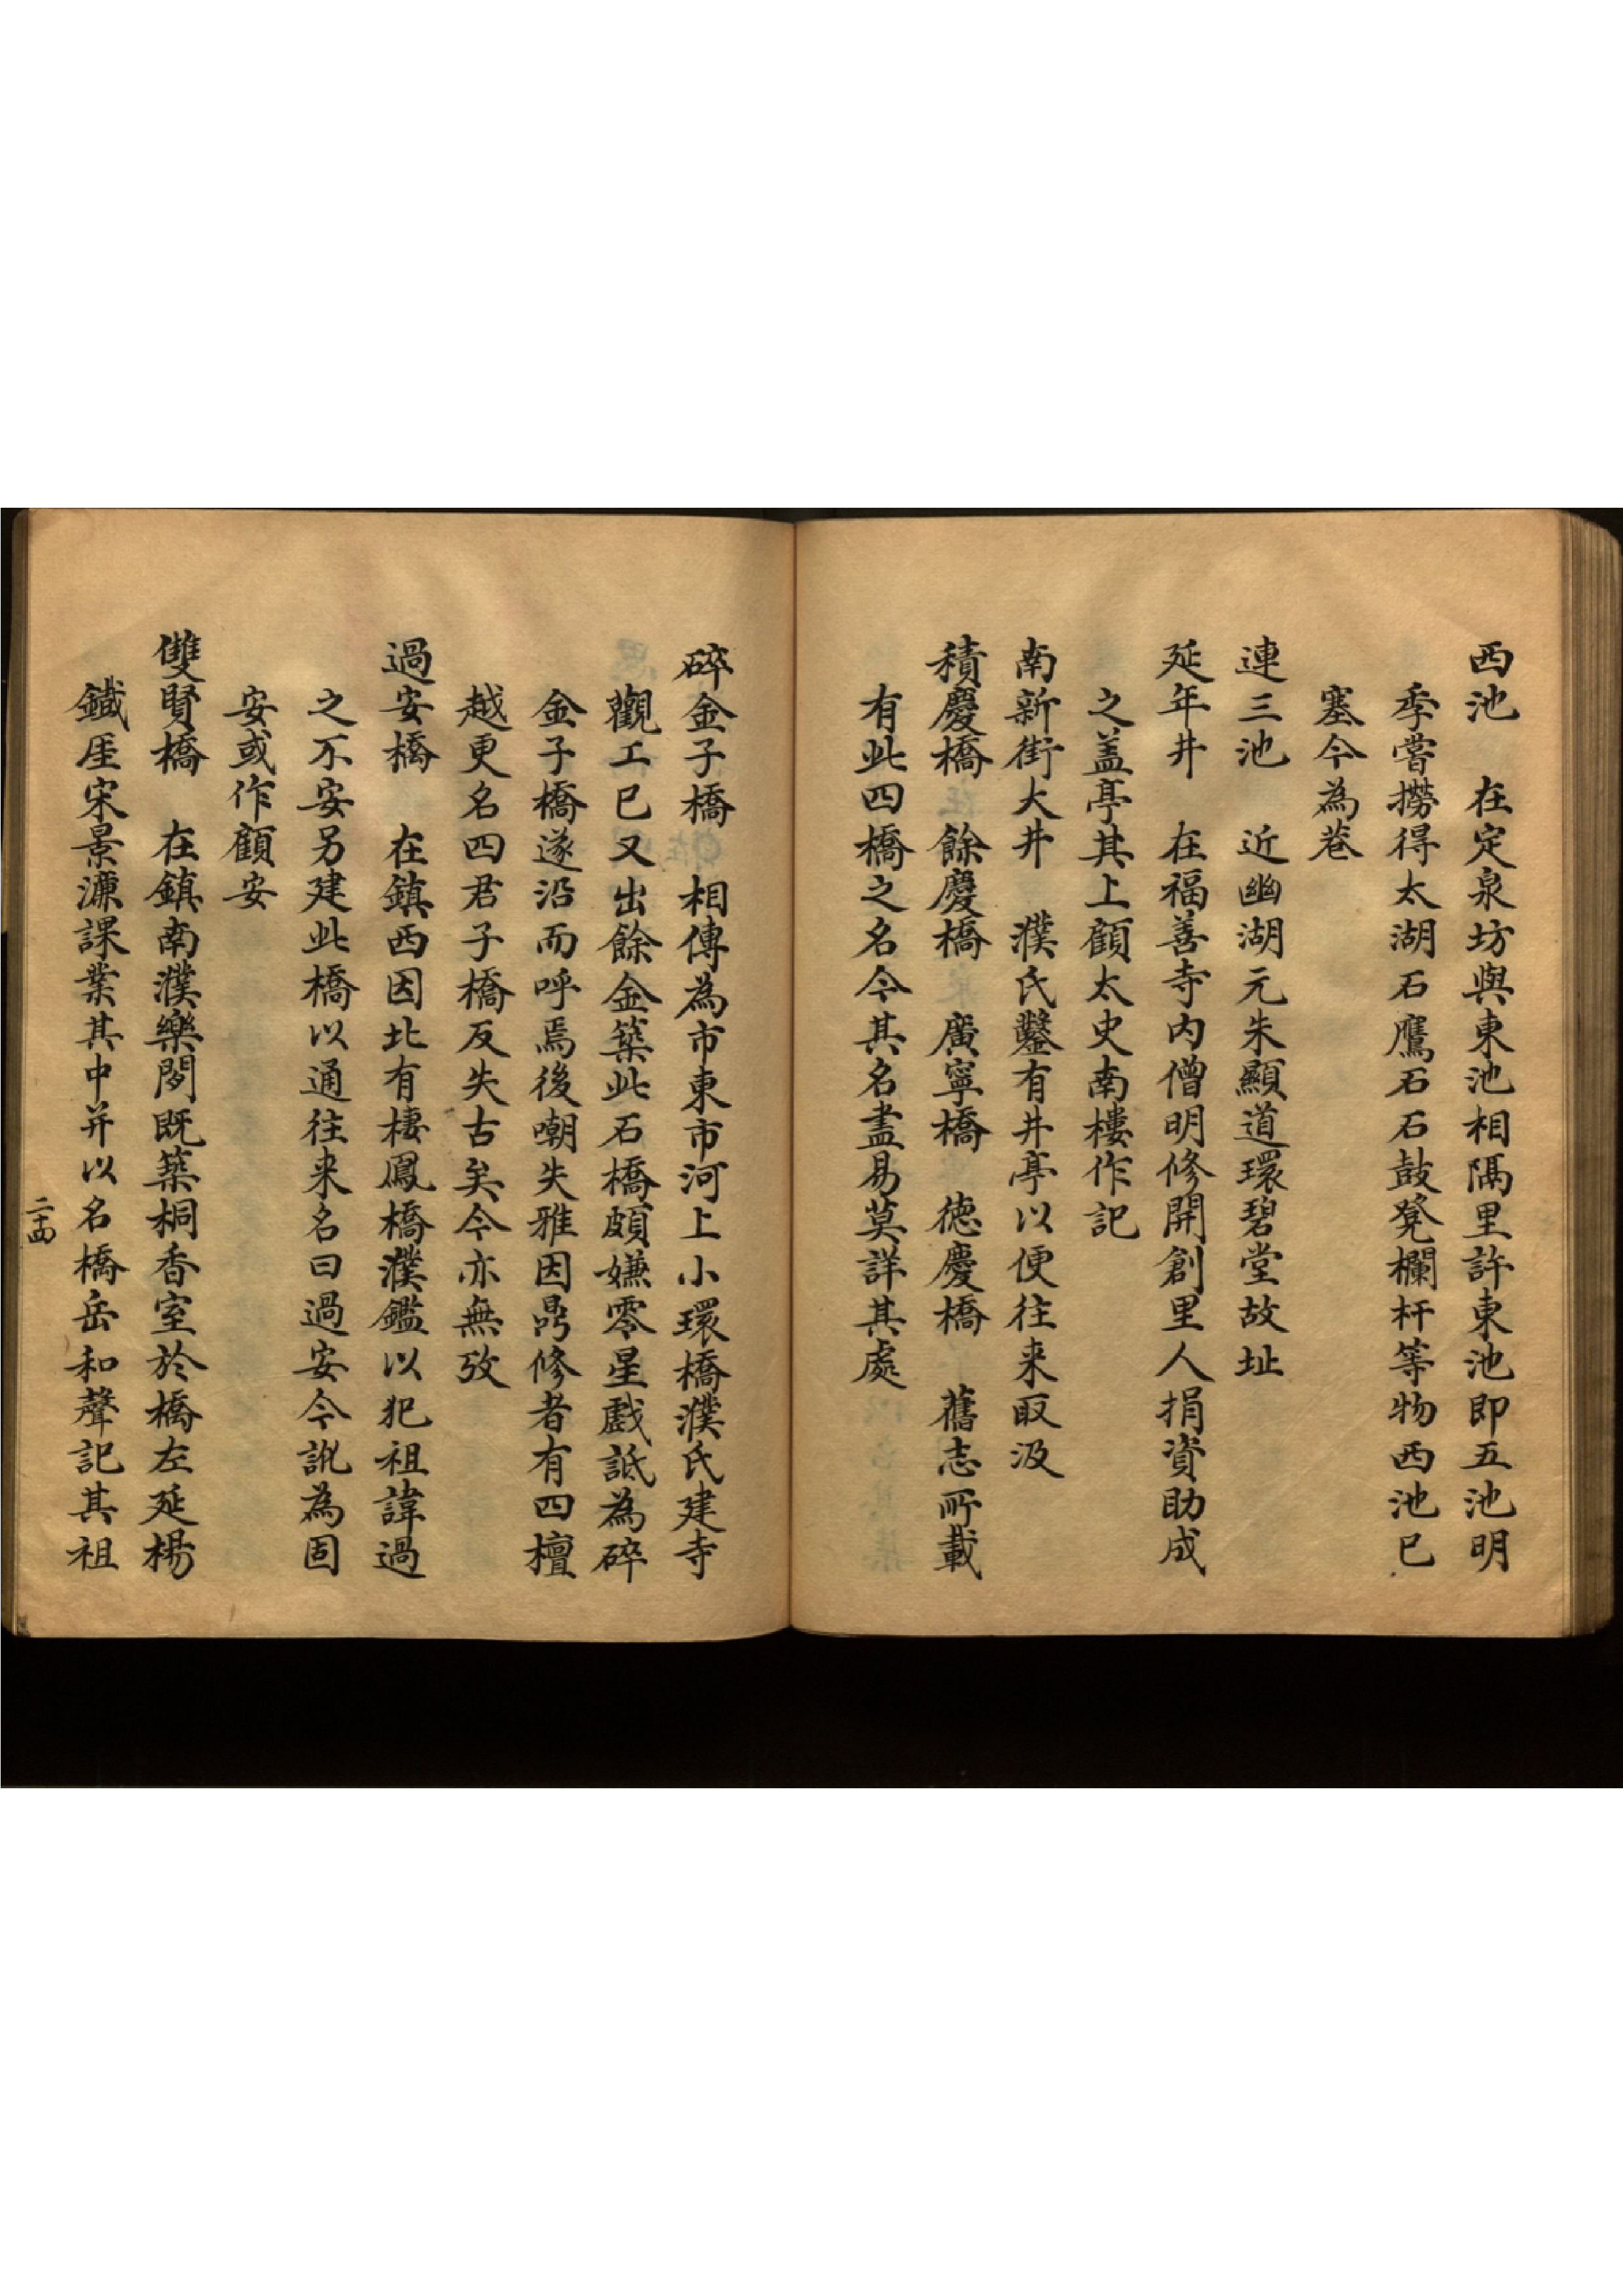 西池　在定泉坊與東池相隔里許東池即五池明
季嘗撈得太湖石鷹石石鼓凳欄杆等物西池已
塞今為巷
連三池　近幽湖元朱顯道環碧堂故址
延年井　在福善寺内僧明修開創里人捐資助成
之盖亭其上顧太史南樓作記
南新街大井　濮氏鑿有井亭以便往来取汲
積慶橋　餘慶橋　廣寧橋　德慶橋　舊志所載
有此四橋之名今其名盡易莫詳其處
碎金子橋　相傳為市東市河上小環橋濮氏建寺
觀工已又出餘金築此石橋頗嫌零星戲詆為碎
金子橋遂沿而呼焉後嘲失雅因爲修者有四檀
越更名四君子橋反失古矣今亦無攷
過安橋　在鎮西因北有棲鳳橋濮鑑以犯祖諱過
之不安另建此橋以通往来名曰過安今訛為固
安或作顧安
雙賢橋　在鎮南濮樂閒既築桐香室於橋左延楊
鐵厓宋景濂課業其中并以名橋岳和聲記其祖
二十四